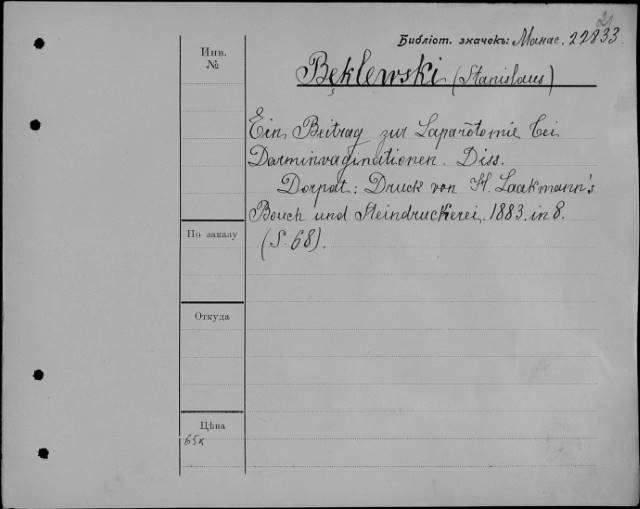 21
Библіот. значекъ: Манас. 22833.
Инв.
№
Bęklewski (Stanislaus)
Ein Beitrag zur Laparotomie bei
Darminvaginationen. Diss.
Dorpat: Druck von H. Laakmann's
Bouch und Steindruckerei. 1883. in 8.
(S. 68).
По заказу
Откуда
Цѣна
65к